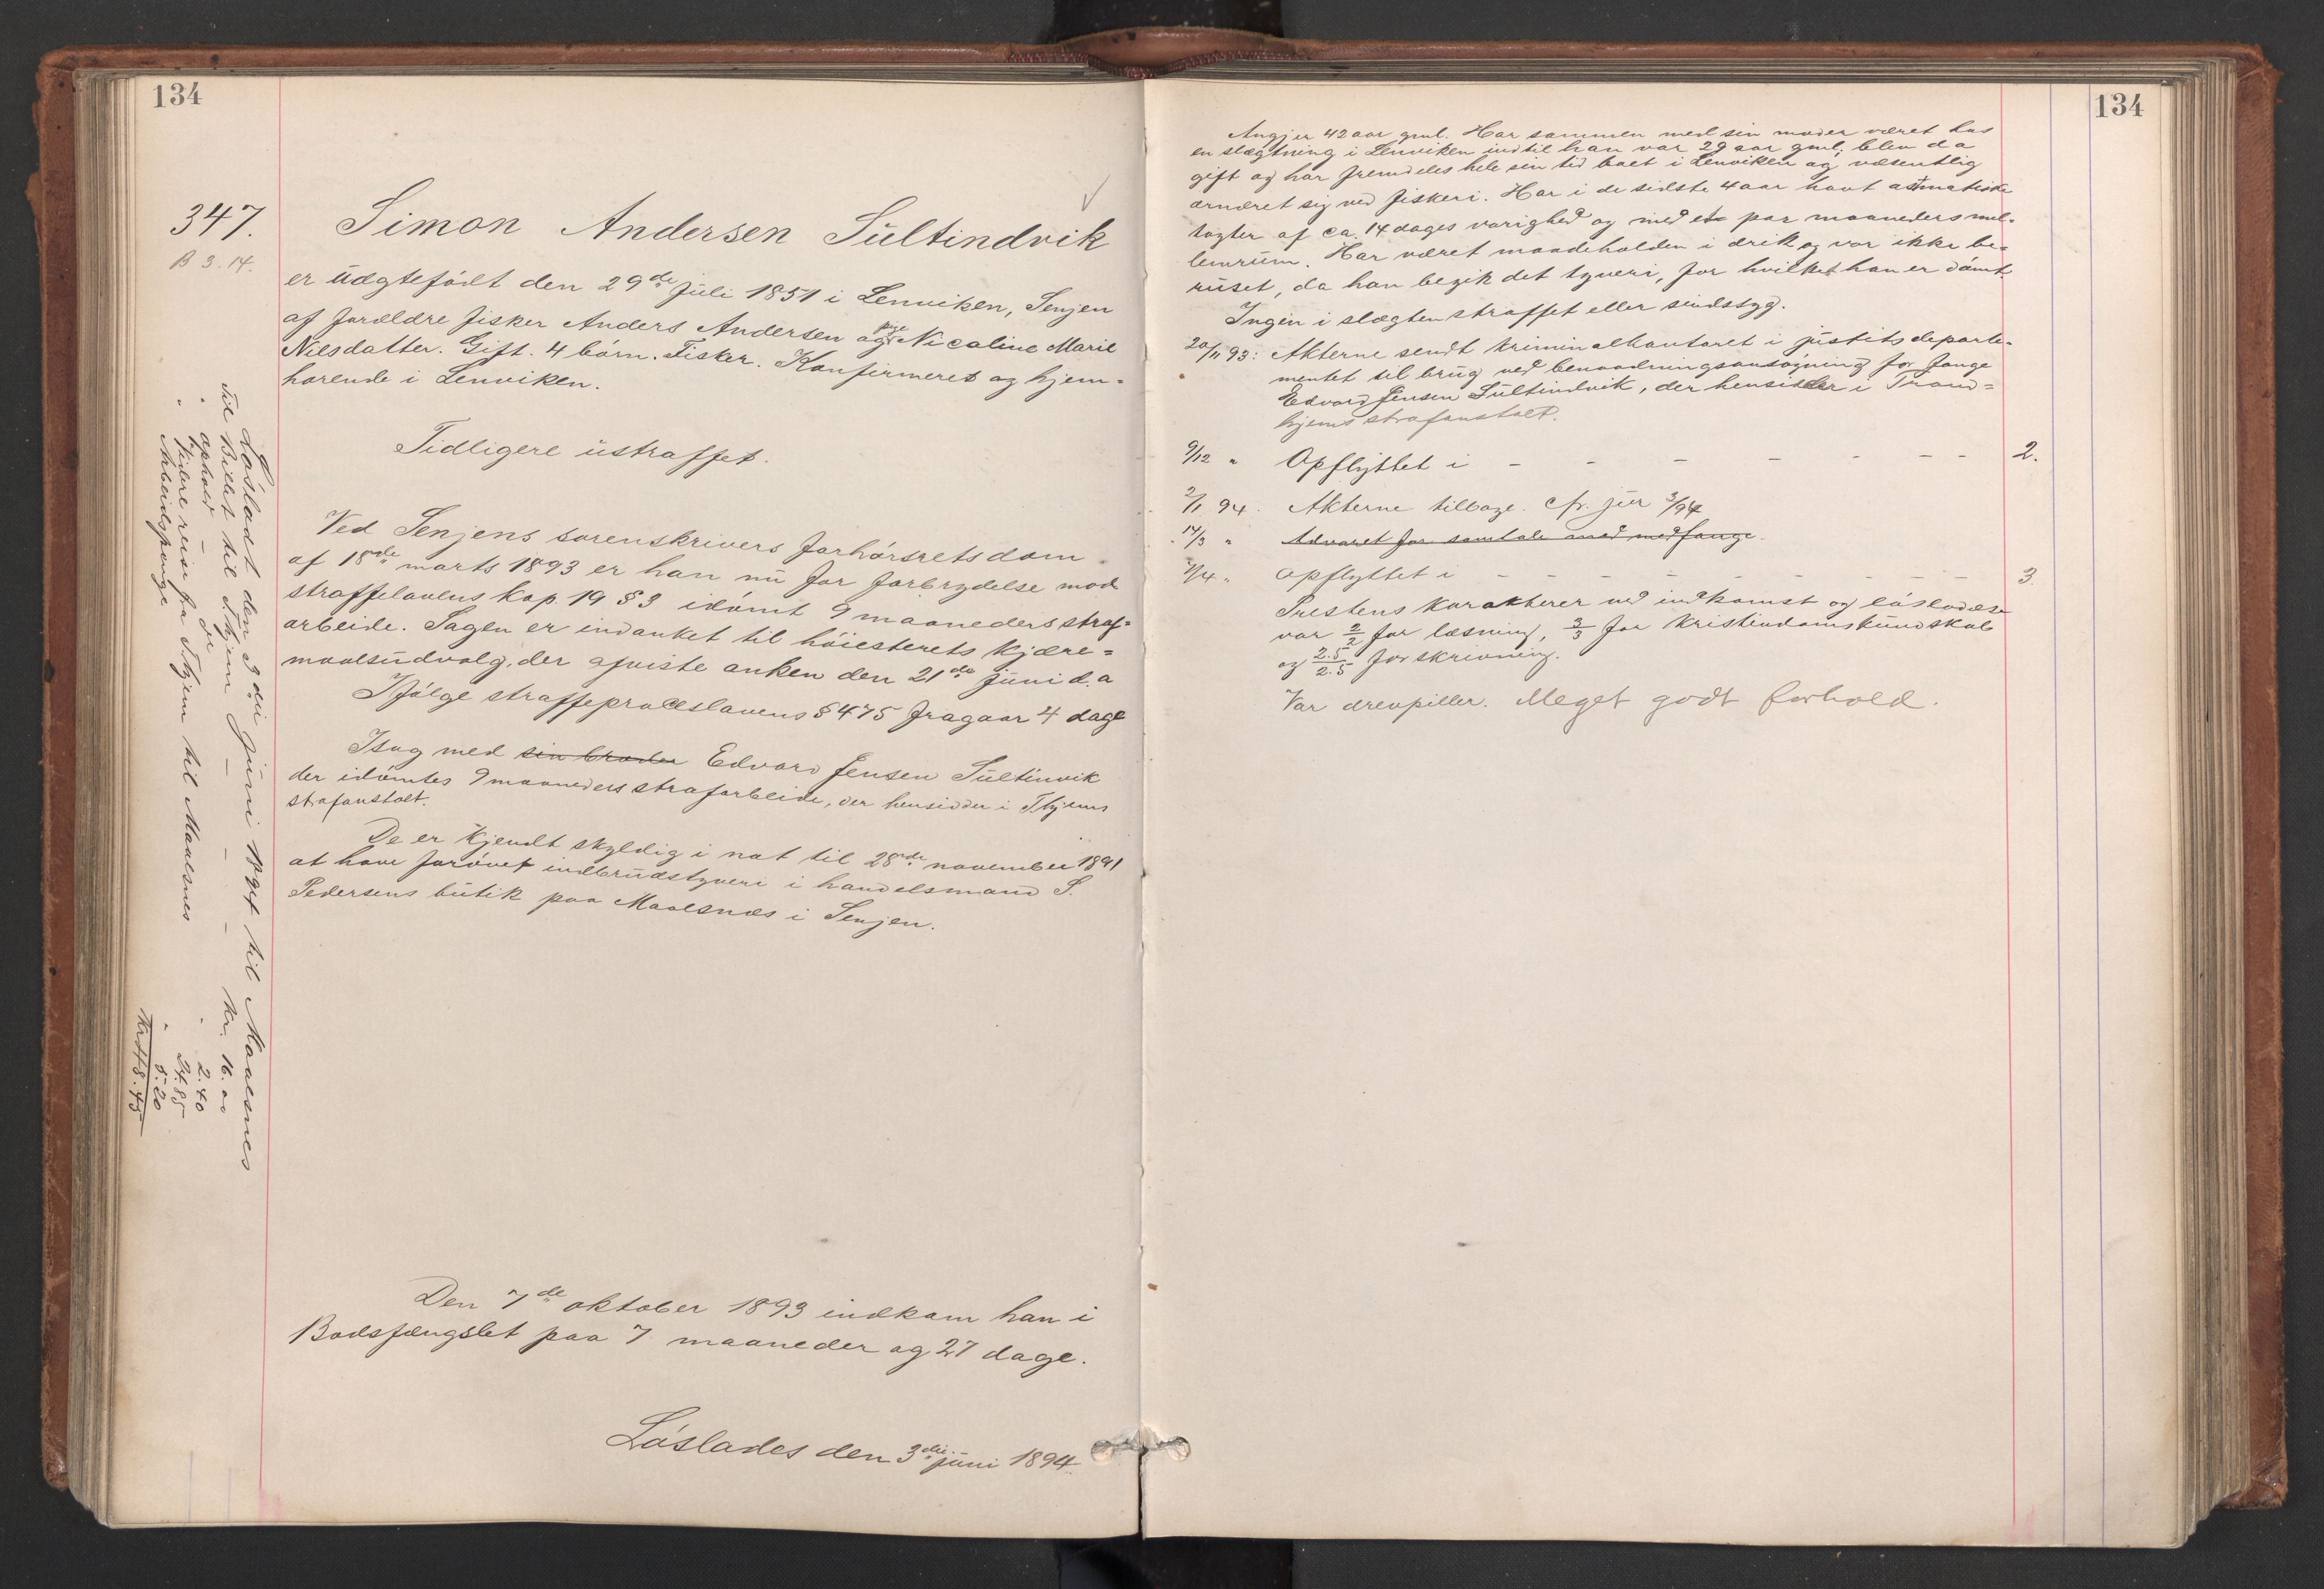 134
347.
B 3.14.
Simon Andersen Sültindvik
er üægtefödt den 29de Juli 1851 i Lenviken, Senjen
af forældre fisker Anders Andersen og pige Nicoline Marie
Nilsdatter. Gift. 4 börn. Fisker. Konfirmeret og hjem=
hörende i Lenviken.
Tidligere üstraffet.
Ved Senjens sorenskrivers forhörsrets dom
af 18de marts 1893 er han nü for forbrydelse mod
straffelovens kap. 19 § 3 idömt 9 maaneders straf=
arbeide. Sagen er indanket til höiesterets kjære=
maalsüdvalg, der afviste anken den 21de jüni d. a
Ifölge straffeproceslovens § 475 fragaar 4 dage
Isag med sin broder Edvard Jensen Sültinvik
der idömtes 9 maaneders strafarbeide, der hensidder i Thjems
strafanstalt.
De er kjendt skyldig i nat til 28de november 1891
at have forövet indbrüdstyveri i handelsmand S.
Pedersens bütik paa Maalsnæs i Senjen.
Den 7de oktober 1893 indkom han i
Bodsfængslet paa 7 maaneder og 27 dage.
Löslades den 3die jüni 1894.
Lösladt den 3die jüni 1894 til Maalsnes
Til Billet til T.hjem — — — Kr. 16.00
" ophold — do " 2.40
" videre reise fra T.hjem til Maalsnes 24.85
Arbeidspenge " 5.20
Kr. 48.45
134
Angj er 42 aar gml. Har sammen med sin moder været hos
en slægtning i Lenviken indtil han var 29 aar gml; blev da
gift og har fremdeles hele sin tid boet i Lenviken og væsentlig
ernæret sig ved fiskeri. Har i de sidste 4 aar havt astmatiske
togter af ca. 14 dages varighed og med et par maaneders mel-
lemrüm. Har været maadeholden i drik og var ikke be-
rüset, da han begik det tyveri, for hvilket han er dömt
Ingen i slægten straffet eller sindssyg.
20/11 93: Akterne sendt kriminalkontoret i jüstitsdeparte-
mentet til brüg ved benaadningsansögning for fange
Edvard Jensen Sültindvik, der hensidder i Trond=
hjems strafanstalt.
9/12 " Opflyttet i - - - - - - - 2.
2/1 94. Akterne tilbage. cfr. jür 3/94
14/3 " Advaret for samtale med medfange.
2/4 " Opflyttet i - - - - - - - - 3.
Prestens karakterer ved indkomst og lösladelse
var 2/2 for læsning, 3/3 for kristendomskündskab
og 2.5/2.5 for skrivning.
Var drevpiller. Meget godt forhold.